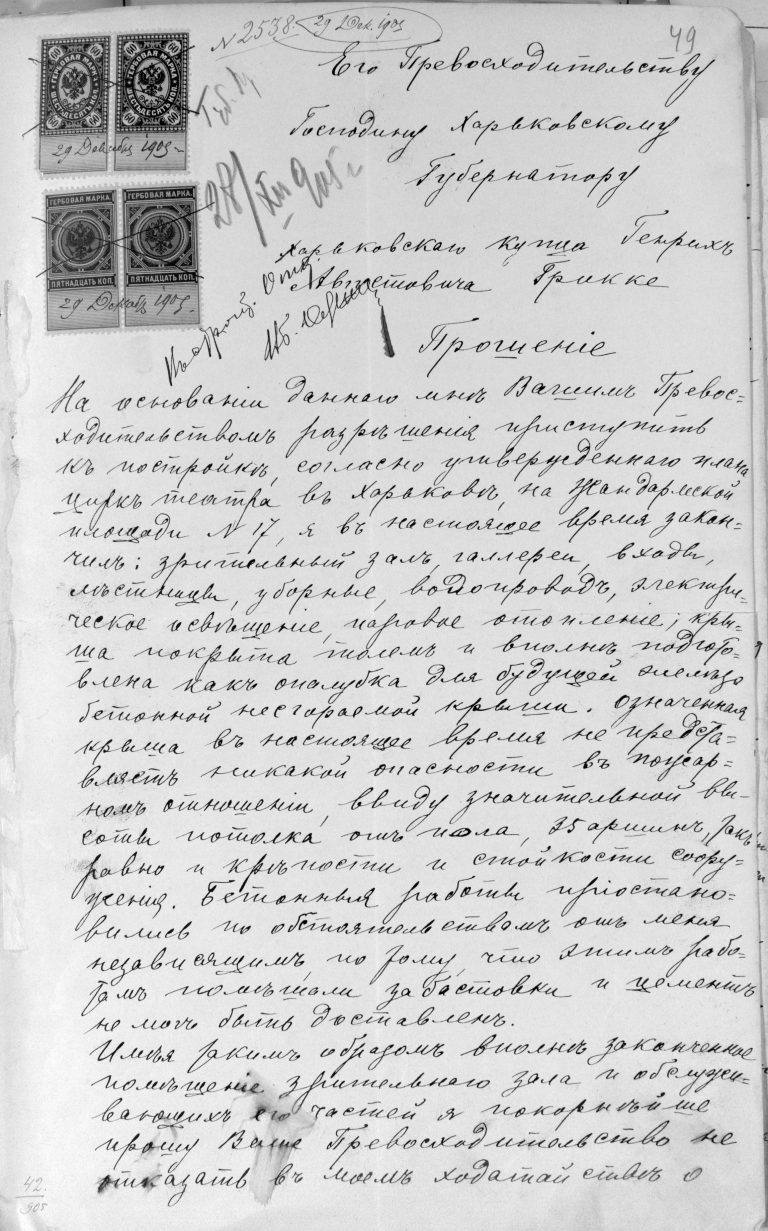 N 2538. 29 Дек. 1905
49
ГЕРБОВАЯ МАРКА ГЕРБОВАЯ МАРКА
60 60 60 60
ШЕСТЬДЕСЯТЪ КОП. ШЕСТЬДЕСЯТЪ КОП.
29 Декабр 1905 г
ГЕРБОВАЯ МАРКА. ГЕРБОВАЯ МАРКА.
ПЯТНАДЦАТЬ КОП. ПЯТНАДЦАТЬ КОП.
29 Декабр 1905 г.
28/XII 905 г
Его Превосходительству
Господину Харьковскому
Губернатору
Харьковскаго купца Генрихъ
Августовича Грикке
Прошеніе
На основаніи даннаго мнѣ Вашимъ Превос=
ходительствомъ разрѣшенія приступить
къ постройкѣ, согласно утвержденнаго плана
циркъ театра въ Харьковѣ, на Жандармской
площади N 17, я въ настоящее время закон=
чилъ: зрительный залъ, галлереи, входы,
лѣстницы, уборные, водопроводъ, электри=
ческое освѣщеніе, паровое отопленіе; кры=
ша покрыта толемъ и вполнѣ подгото=
влена какъ опалубка для будущей желѣзо
бетонной несгораемой крыши. Означенная
крыша въ настоящее время не предста=
вляетъ никакой опасности въ пожар=
номъ отношеніи, ввиду значительной вы=
соты потолка отъ пола, 35 аршинъ, такъ
равно и крѣпости и стойкости соору=
женія. Бетонныя работы пріостано=
вились по обстоятельствамъ отъ меня
независящимъ, по тому, что этимъ рабо=
тамъ помѣшали забастовки и цементъ
не могъ быть доставленъ.
Имѣя такимъ образомъ вполнѣ законченное
помѣщеніе зрительнаго зала и обслужи=
вающихъ его частей я покорнѣйше
прошу Ваше Превосходительство не
отказать въ моемъ ходатайствѣ о
42.
905